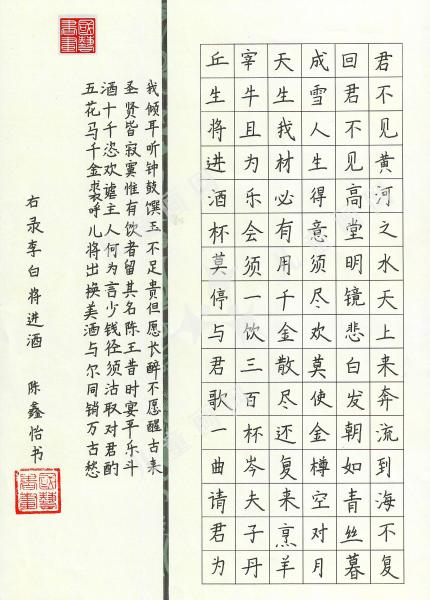 君不见黄河之水天上来奔流到海不复
回君不见高堂明镜悲白发朝如青丝暮
成雪人生得意须尽欢莫使金樽空对月
天生我材必有用千金散尽还复来烹羊
宰牛且为乐会须一饮三百杯岑夫子丹
丘生将进酒杯莫停与君歌一曲请君为
我倾耳听钟鼓馔玉不足贵但愿长醉不愿醒古来
圣贤皆寂寞惟有饮者留其名陈王昔时宴平乐斗
酒十千恣欢谑主人何为言少钱径须沽取对君酌
五花马千金裘呼儿将出换美酒与尔同销万古愁
右录李白将进酒 陈鑫怡书
國藝書畫
國藝書畫